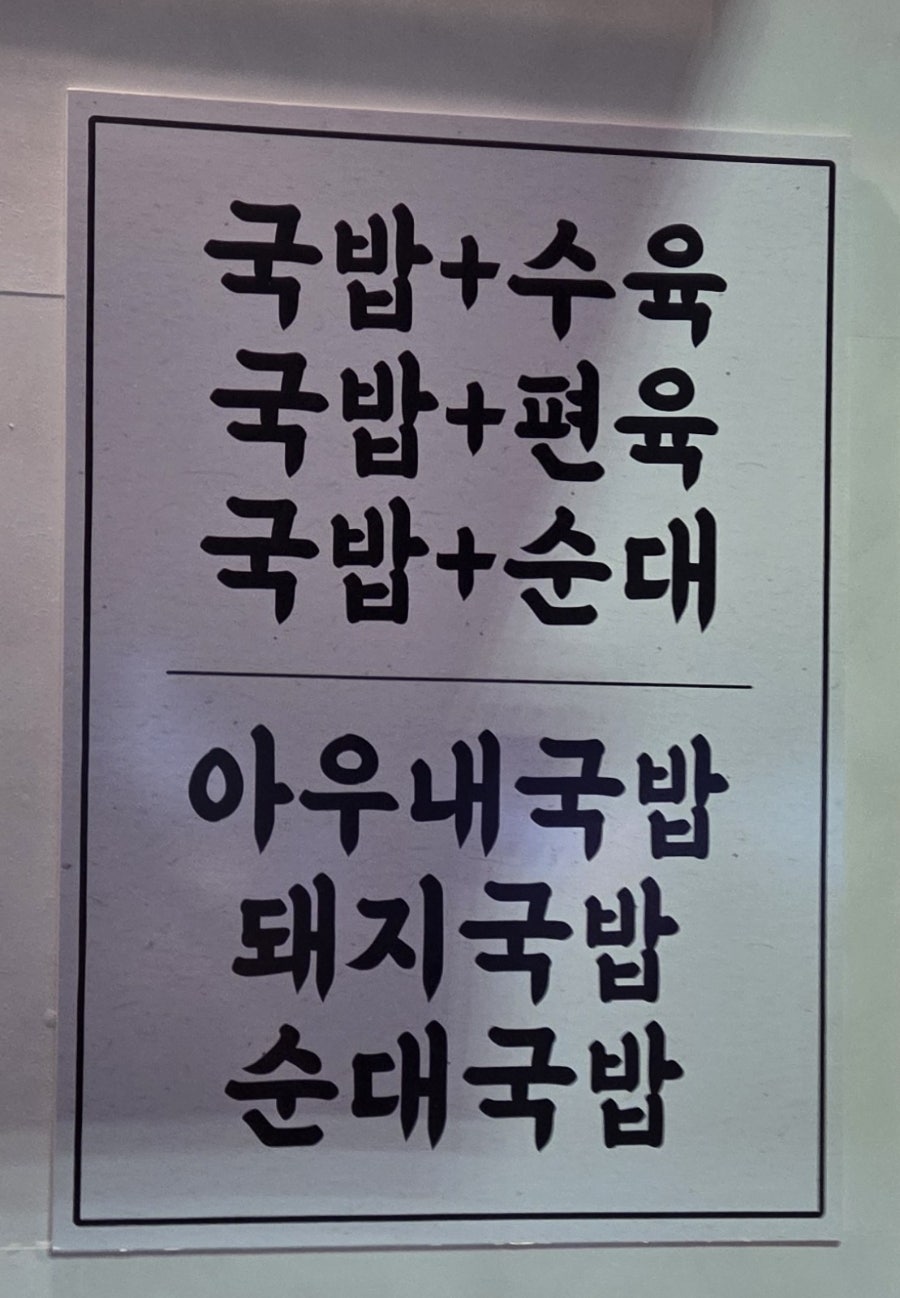 국밥+수육
국밥+편육
국밥+순대
아우내국밥
돼지국밥
순대국밥